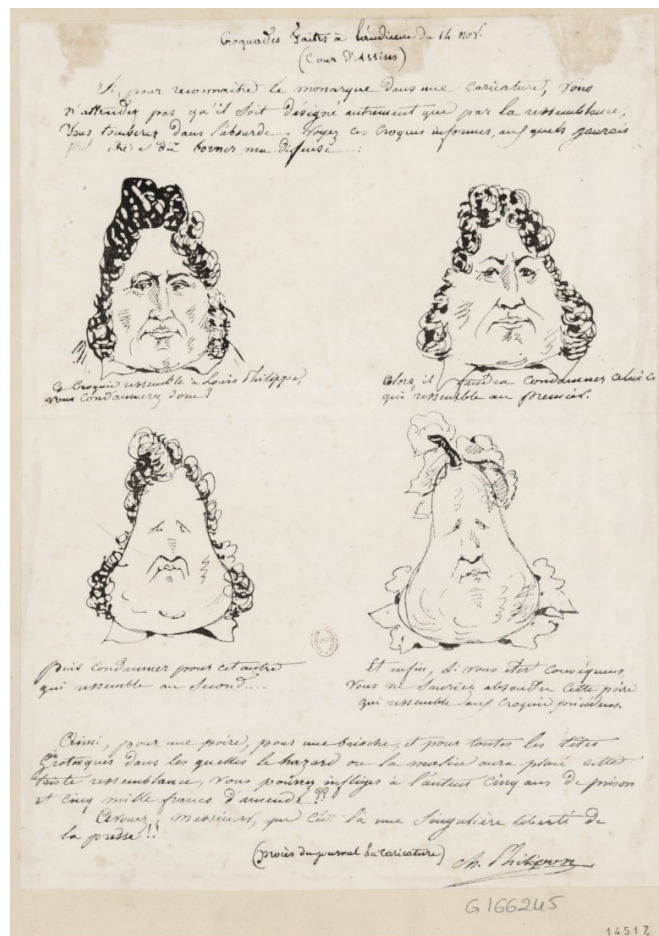 Croquades faites à l'audience du 14 nov.
(Cour d'Assises)
Si, pour reconnaître le monarque dans une caricature, vous
n'attendez pas qu'il soit désigné autrement que par la ressemblance,
vous tomberez dans l'absurde. Voyez ces croquis informes, auxquels j'aurais
peut-être dû borner ma défense :
Ce croquis ressemble à Louis Philippe,
vous condamnerez donc ?
Alors il faudra condamner celui-ci
qui ressemble au premier.
Puis condamner pour cet autre
qui ressemble au second....
Et enfin, si vous êtes conséquens,
vous ne sauriez absoudre cette poire
qui ressemble aux croquis précédens.
Ainsi, pour une poire, pour une brioche, et pour toutes les têtes
grotesques dans lesquelles le hazard ou la malice aura placé cette
triste ressemblance, vous pourrez infliger à l'auteur cinq ans de prison
et cinq mille francs d'amende ??
Avouez, Messieurs, que c'est là une singulière liberté de
la presse !!
(procès du journal la caricature)
Ch. Philipon
G166245
14517